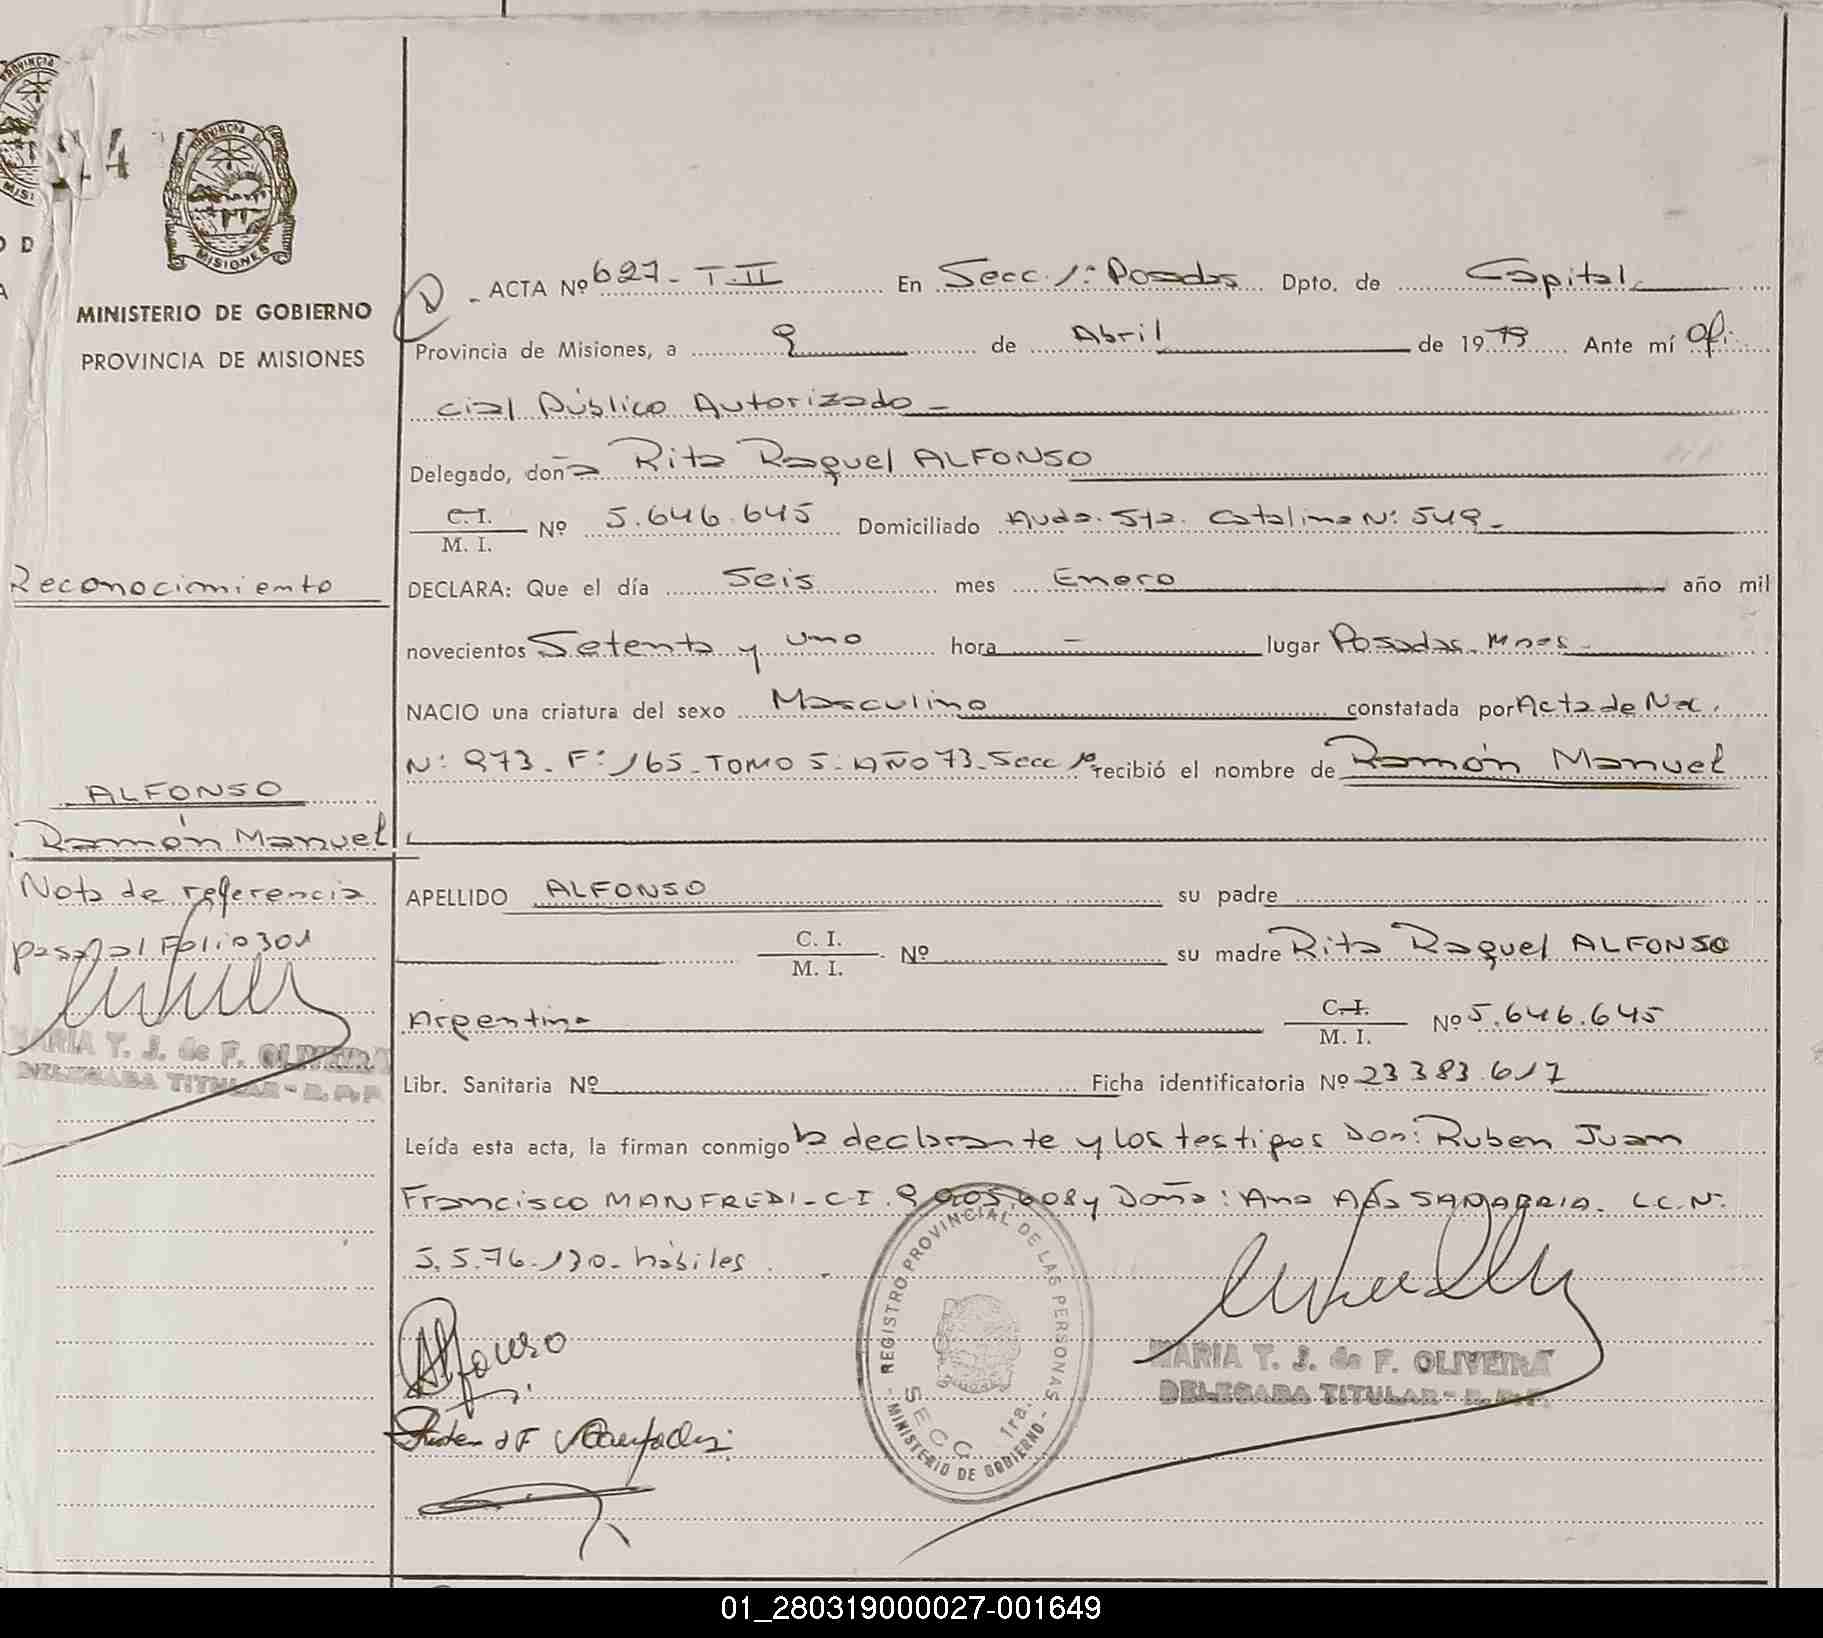 PROVINCIA DE
MISIONES
MINISTERIO DE GOBIERNO
PROVINCIA DE MISIONES
Reconocimiento
ALFONSO
Ramón Manuel
Nota de referencia
pasa al Folio 301
MARIA T. J. de F. OLIVEIRA
DELEGADA TITULAR - R. P. P.
ACTA Nº 627 - T. II En Secc. 1ª Posadas Dpto. de Capital
Provincia de Misiones, a 9 de Abril de 1979 Ante mí Ofi-
cial Público Autorizado -
Delegado, doña Rita Raquel ALFONSO
C. I. / M. I. Nº 5.646.645 Domiciliado Avda. Sta. Catalina Nº 549 -
DECLARA: Que el día Seis mes Enero año mil
novecientos Setenta y uno hora - lugar Posadas. Mnes -
NACIO una criatura del sexo Masculino constatada por Acta de Nac.
Nº 973 - Fº 165 - TOMO 5 - AÑO 73 - Secc 1ª recibió el nombre de Ramón Manuel
APELLIDO ALFONSO su padre
C. I. / M. I. Nº su madre Rita Raquel ALFONSO
Argentina C. I. / M. I. Nº 5.646.645
Libr. Sanitaria Nº Ficha identificatoria Nº 23 383.617
Leída esta acta, la firman conmigo la declarante y los testigos Don: Ruben Juan
Francisco MANFREDI - C.I. 9.005.608 y Doña: Ana SANABRIA. L.C. Nº
5.576.130 - hábiles.
Alfonso
REGISTRO PROVINCIAL DE LAS PERSONAS
SECC. 1ra.
MINISTERIO DE GOBIERNO
MARIA T. J. de F. OLIVEIRA
DELEGADA TITULAR - R. P. P.
01_280319000027-001649